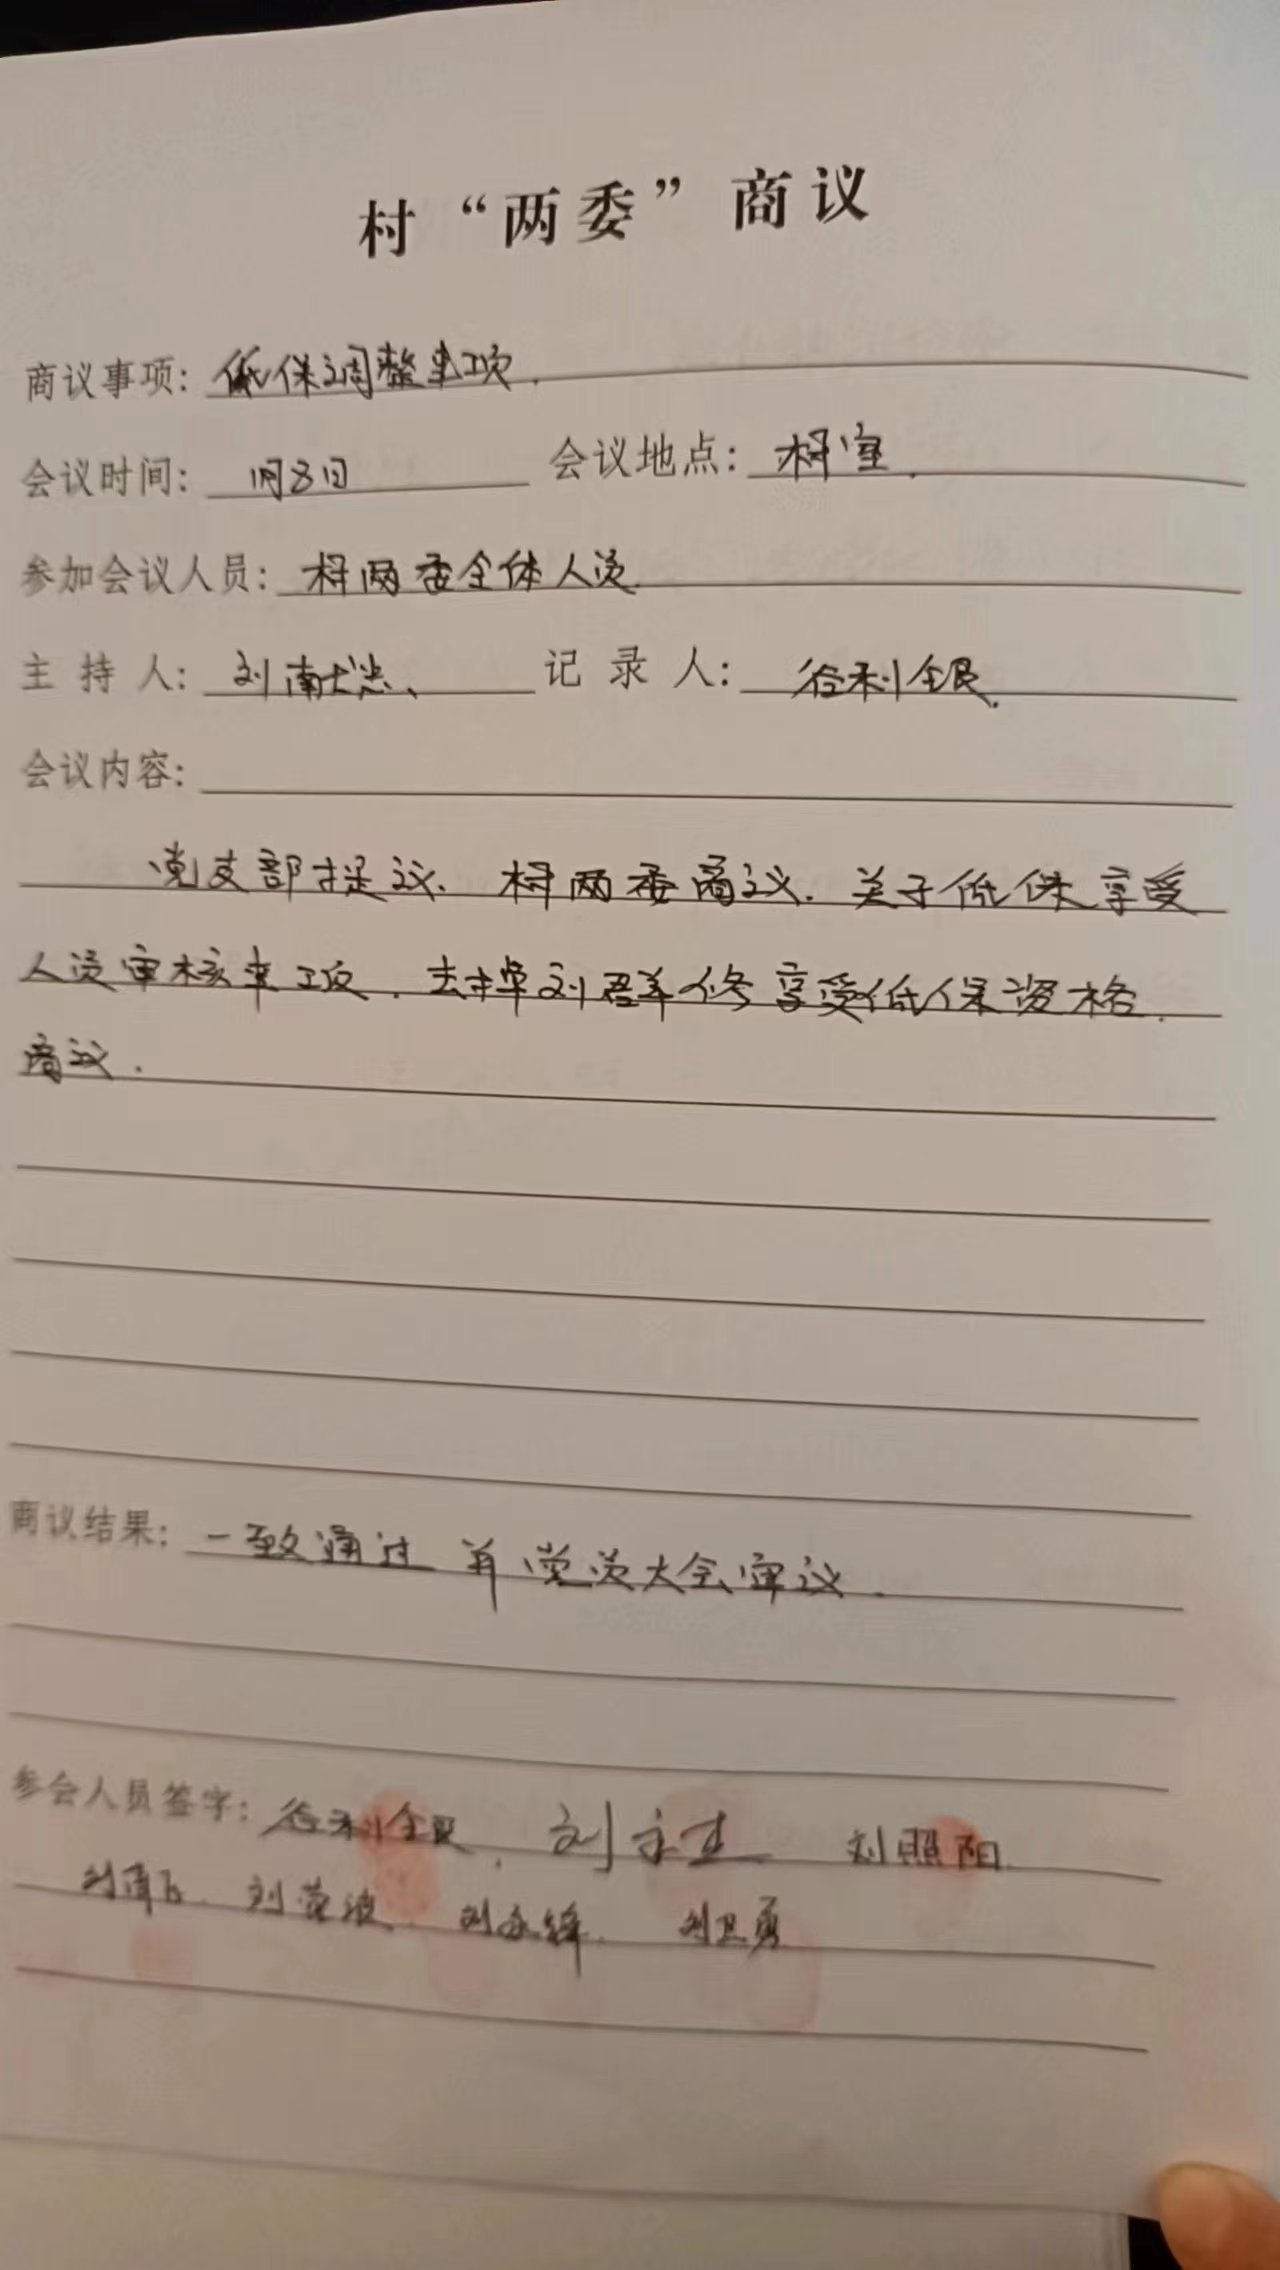 村“两委”商议
商议事项：低保调整事项.
会议时间：1月8日 会议地点：村室.
参加会议人员：村两委全体人员.
主 持 人：刘 记 录 人：谷利银.
会议内容：
党支部提议、村两委商议.关于低保享受
人员审核事项.去掉刘群修享受低保资格.
商议.
商议结果：一致通过 并党员大会审议.
参会人员签字：谷利银、刘 刘照阳.
刘 刘荣波. 刘永锋. 刘卫勇